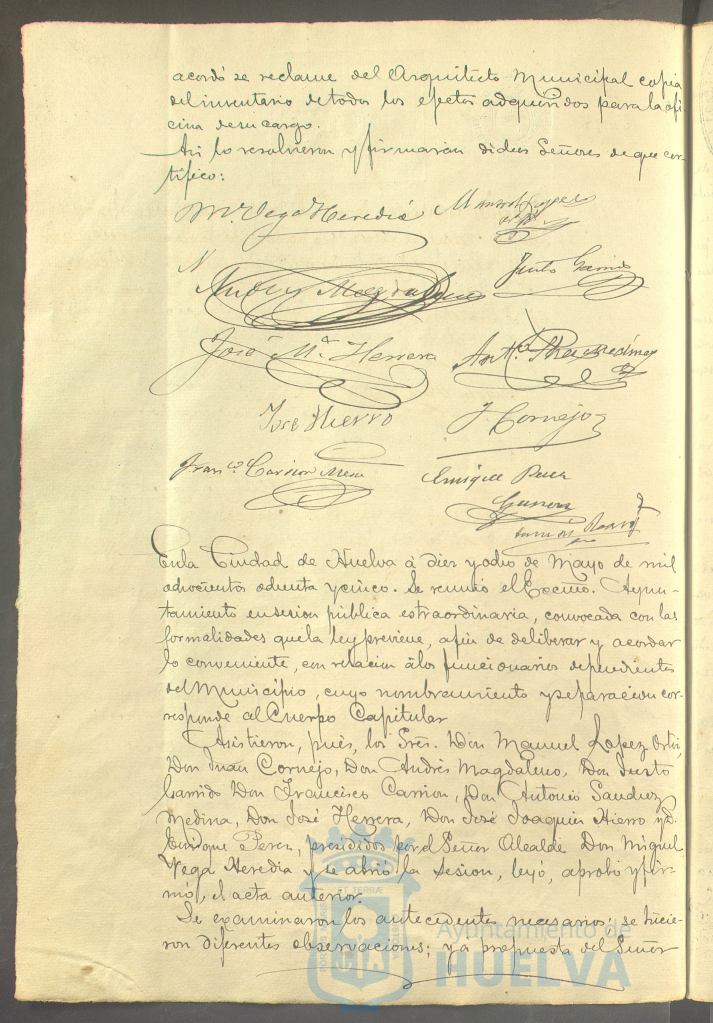 acordó se reclame del Arquitecto Municipal copia
del inventario de todos los efectos adquiridos para la ofi
cina de su cargo.
Asi lo resolvieron y firmaron dichos Señores de que cer
tifico:
M. Vega Heredia
Andrés Magdaleno
Justo Garrido
José Mª Herrera
Antº
José Hierro
J Cornejo
Franco Carrion
Enrique Perez
Enla Ciudad de Huelva á diez y ocho de Mayo de mil
ochocientos ochenta y cinco. Se reunió el Excmo. Ayun-
tamiento en sesion pública estraordinaria, convocada con las
formalidades que la ley previene, afin de deliberar y acordar
lo conveniente, con relacion á los funcionarios dependientes
del Municipio, cuyo nombramiento y separacion cor-
responde al Cuerpo Capitular
Asistieron, pués, los Sres. Don Manuel Lopez Ortiz,
Don Juan Cornejo, Don Andrés Magdaleno, Don Justo
Garrido Don Francisco Carrion, Don Antonio Sanchez
Medina, Don José Herrera, Don José Joaquin Hierro y D.
Enrique Perez, presididos por el Señor Alcalde Don Miguel
Vega Heredia y se abrió la sesion, leyó, aprobó y fir-
mó, el acta anterior.
Se examinaron los antecedentes necesarios; se hicie-
ron diferentes observaciones; y a propuesta del Señor
Ayuntamiento de
HUELVA